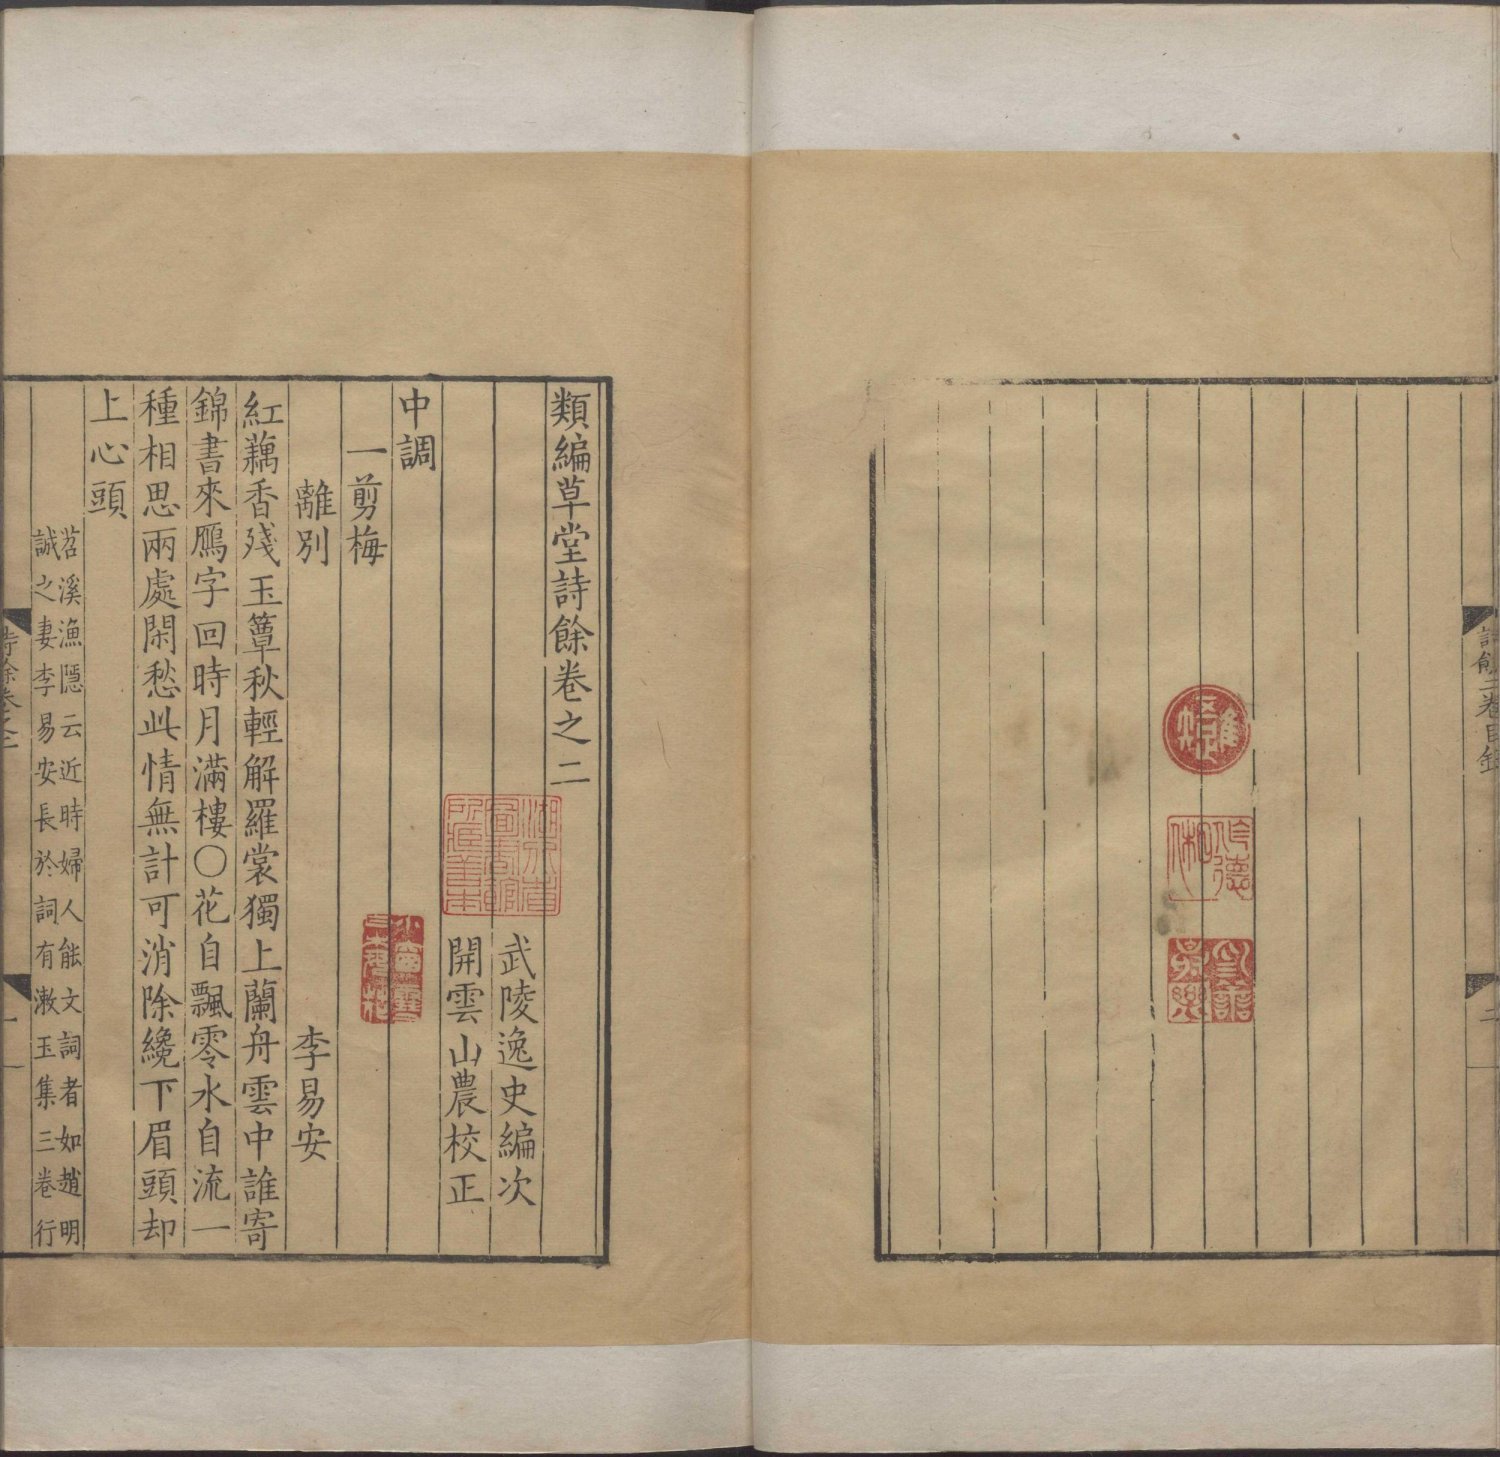 詩餘二卷目錄
二
類編草堂詩餘卷之二
武陵逸史編次
開雲山農校正
中調
一剪梅
離別
李易安
紅藕香殘玉簟秋輕解羅裳獨上蘭舟雲中誰寄
錦書來鴈字回時月滿樓○花自飄零水自流一
種相思兩處閑愁此情無計可消除纔下眉頭却
上心頭
苕溪漁隱云近時婦人能文詞者如趙明
誠之妻李易安長於詞有漱玉集三卷行
詩餘卷之二
一